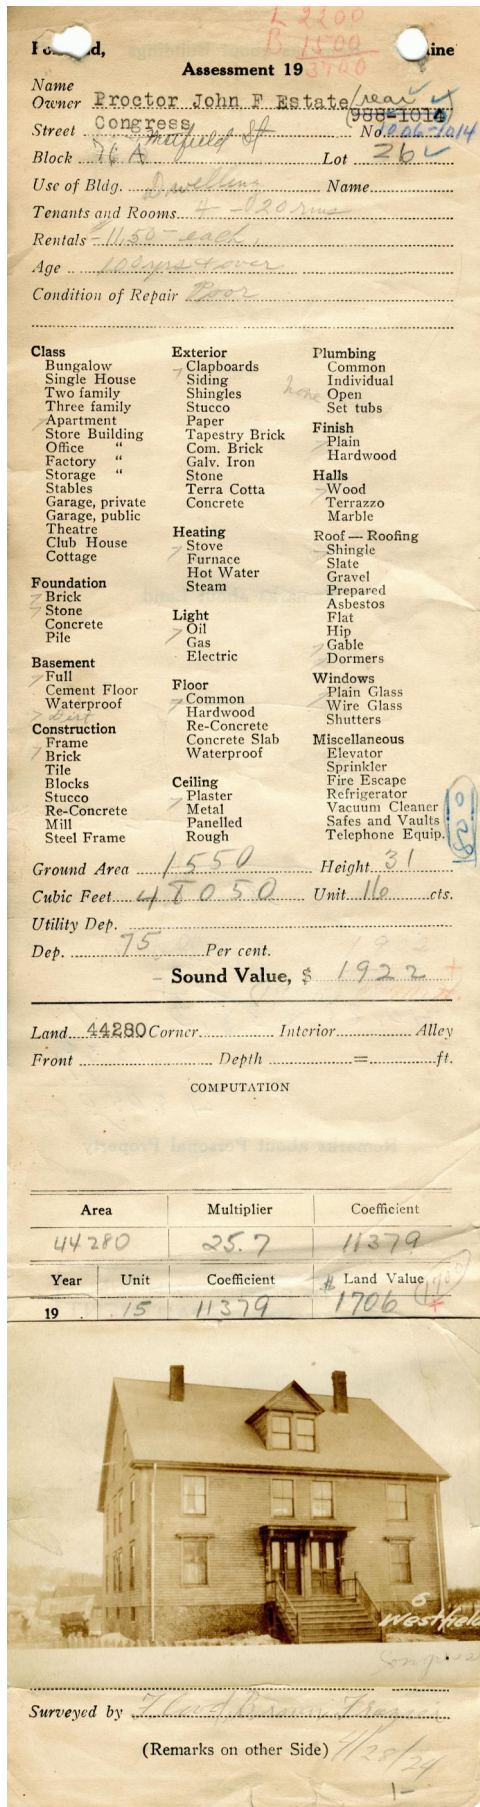 L 2200
B 1500
3700
Assessment 19
Name
Owner Proctor John F Estate (rear
988-1014
Street Congress No. 1006-1014
Block 76 A Lot 26
Use of Bldg. Dwelling Name
Tenants and Rooms 4 - 20 rms
Rentals $11.50 - each.
Age 100 yrs + over
Condition of Repair Poor
Class
Bungalow
Single House
Two family
Three family
Apartment
Store Building
Office "
Factory "
Storage "
Stables
Garage, private
Garage, public
Theatre
Club House
Cottage
Foundation
Brick
Stone
Concrete
Pile
Basement
Full
Cement Floor
Waterproof
Dirt
Construction
Frame
Brick
Tile
Blocks
Stucco
Re-Concrete
Mill
Steel Frame
Exterior
Clapboards
Siding
Shingles
Stucco
Paper
Tapestry Brick
Com. Brick
Galv. Iron
Stone
Terra Cotta
Concrete
Heating
Stove
Furnace
Hot Water
Steam
Light
Oil
Gas
Electric
Floor
Common
Hardwood
Re-Concrete
Concrete Slab
Waterproof
Ceiling
Plaster
Metal
Panelled
Rough
Plumbing
Common
Individual
none Open
Set tubs
Finish
Plain
Hardwood
Halls
Wood
Terrazzo
Marble
Roof — Roofing
Shingle
Slate
Gravel
Prepared
Asbestos
Flat
Hip
Gable
Dormers
Windows
Plain Glass
Wire Glass
Shutters
Miscellaneous
Elevator
Sprinkler
Fire Escape
Refrigerator
Vacuum Cleaner
Safes and Vaults
Telephone Equip.
Ground Area 1550 Height 31
Cubic Feet 48050 Unit 16 cts.
Utility Dep.
Dep. 75 Per cent.
Sound Value, $ 1922
Land 44280 Corner Interior Alley
Front Depth = ft.
COMPUTATION
Area Multiplier Coefficient
44280 25.7 11379
Year Unit Coefficient $ Land Value 1700
19 15 11379 1706
6
Westfield
Congress
Surveyed by Floyd, Brown, Frazier
(Remarks on other Side) 7/28/24
1-